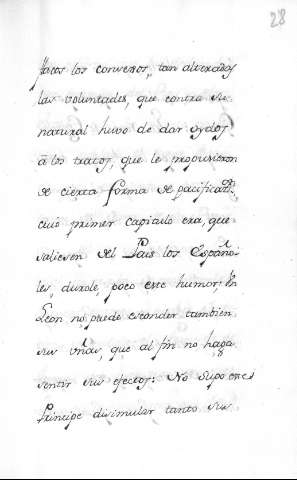 28
facos los conversos, tan alterados
las voluntades, que contra su
natural huvo de dar oydos
a los tratos, que le propusieron
de cierta forma de pacificaon.
cuio primer capitulo era, que
saliesen del Pais los Españo-
les, durole, poco este humor; Un
Leon no puede esconder tambien
sus uñas, que al fin no haga
sentir sus efectos: No Supo este
Principe disimular tanto sus